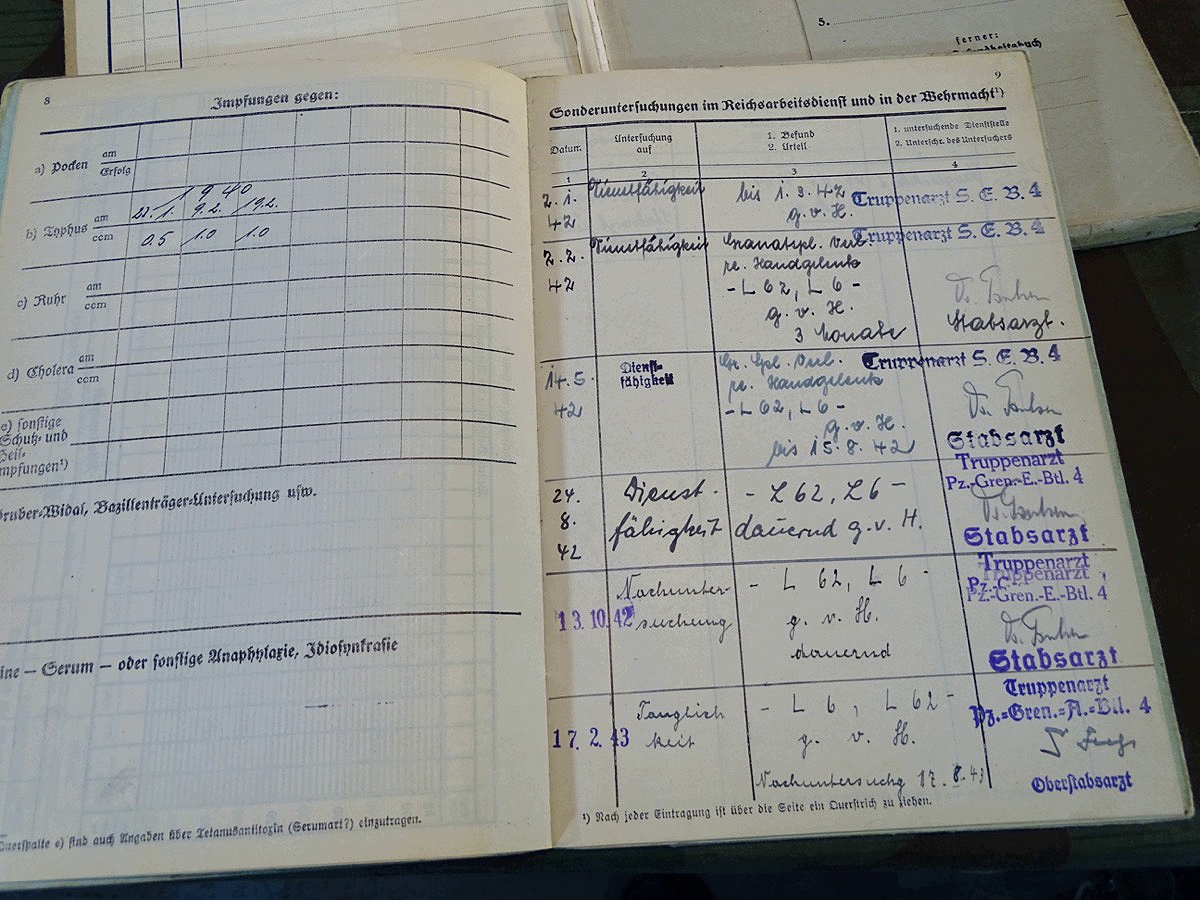 5.
ferner:
8
Impfungen gegen:
a) Pocken
am
Erfolg
1940
b) Typhus
am
22. 1. 9.2. 19.2.
ccm
0.5 1.0 1.0
c) Ruhr
am
ccm
d) Cholera
am
ccm
e) sonstige
Schutz- und
Heil-
mpfungen¹)
ruber-Widal, Bazillenträger-Untersuchung usw.
ine — Serum — oder sonstige Anaphylaxie, Idiosynkrasie
Querspalte e) sind auch Angaben über Tetanusantitoxin (Serumart?) einzutragen.
9
Sonderuntersuchungen im Reichsarbeitsdienst und in der Wehrmacht¹)
Datum
Untersuchung
auf
1. Befund
2. Urteil
1. untersuchende Dienststelle
2. Unterschr. des Untersuchers
1 2 3 4
2. 1.
42
Dienstfähigkeit
bis 1. 3. 42
g. v. H.
Truppenarzt S. E. B. 4
2. 2.
42
Dienstfähigkeit
Granatspl. Verl.
re. Handgelenk
- L 62, L 6 -
g. v. H.
3 Monate
Truppenarzt S. E. B. 4
Stabsarzt.
14. 5.
42
Dienst-
fähigkeit
Gr. Spl. Verl.
re. Handgelenk
- L 62, L 6 -
g. v. H.
bis 15. 8. 42
Truppenarzt S. E. B. 4
Stabsarzt
24.
8.
42
Dienst-
fähigkeit
- L 62, L 6 -
dauernd g. v. H.
Truppenarzt
Pz.-Gren.-E.-Btl. 4
Stabsarzt
13. 10. 42
Nachunter-
suchung
- L 62, L 6 -
g. v. H.
dauernd
Truppenarzt
Truppenarzt
Pz.-Gren.-E.-Btl. 4
Stabsarzt
17. 2. 43
Tauglich
keit
- L 6, L 62 -
g. v. H.
Nachuntersuchg 17. 8. 43
Truppenarzt
Pz.-Gren.-A.-Btl. 4
Oberstabsarzt
¹) Nach jeder Eintragung ist über die Seite ein Querstrich zu ziehen.